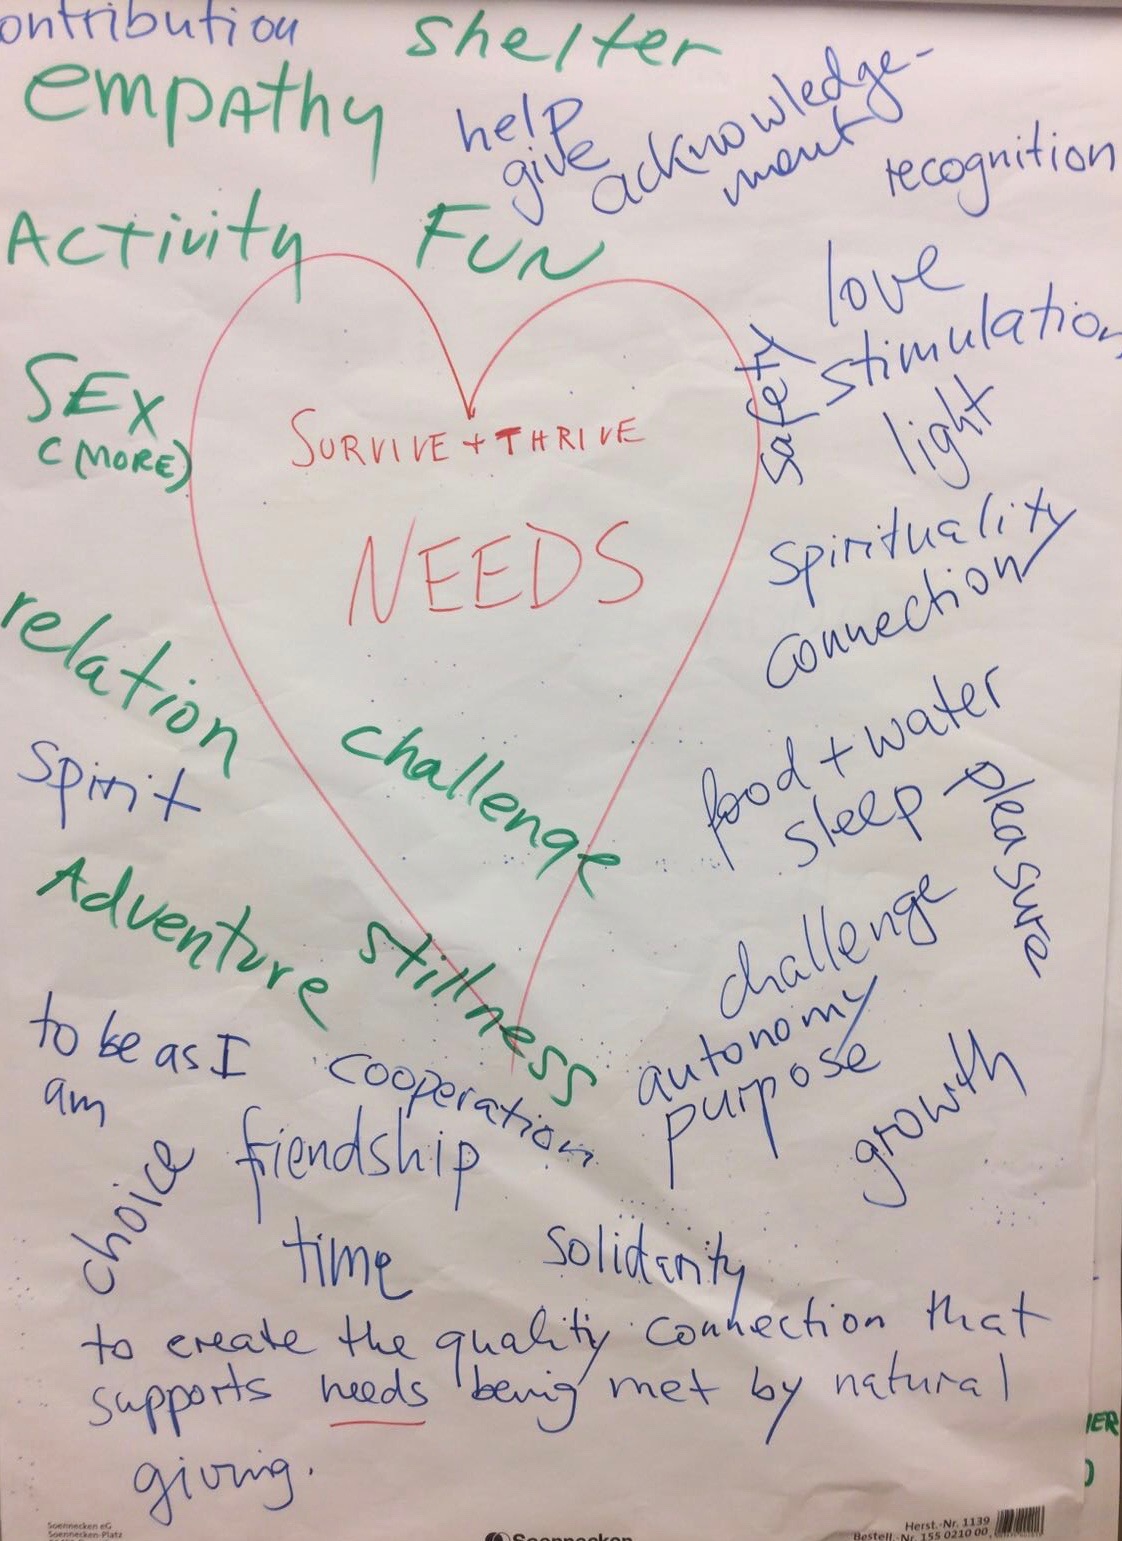 ontribution
shelter
empathy
help
give
acknowledge-
ment
recognition
Activity
FUN
love
stimulation
safety
light
SEX
(MORE)
SURVIVE + THRIVE
NEEDS
spirituality
connection
relation
challenge
food + water
sleep
pleasure
spirit
Adventure
stillness
challenge
autonomy
purpose
growth
to be as I
am
cooperation
choice
friendship
time
solidarity
to create the quality connection that
supports needs being met by natural
giving.
IER
Soennecken eG
Soennecken-Platz
Soennecken
Herst.-Nr. 1139
Bestell.-Nr. 155 0210 00